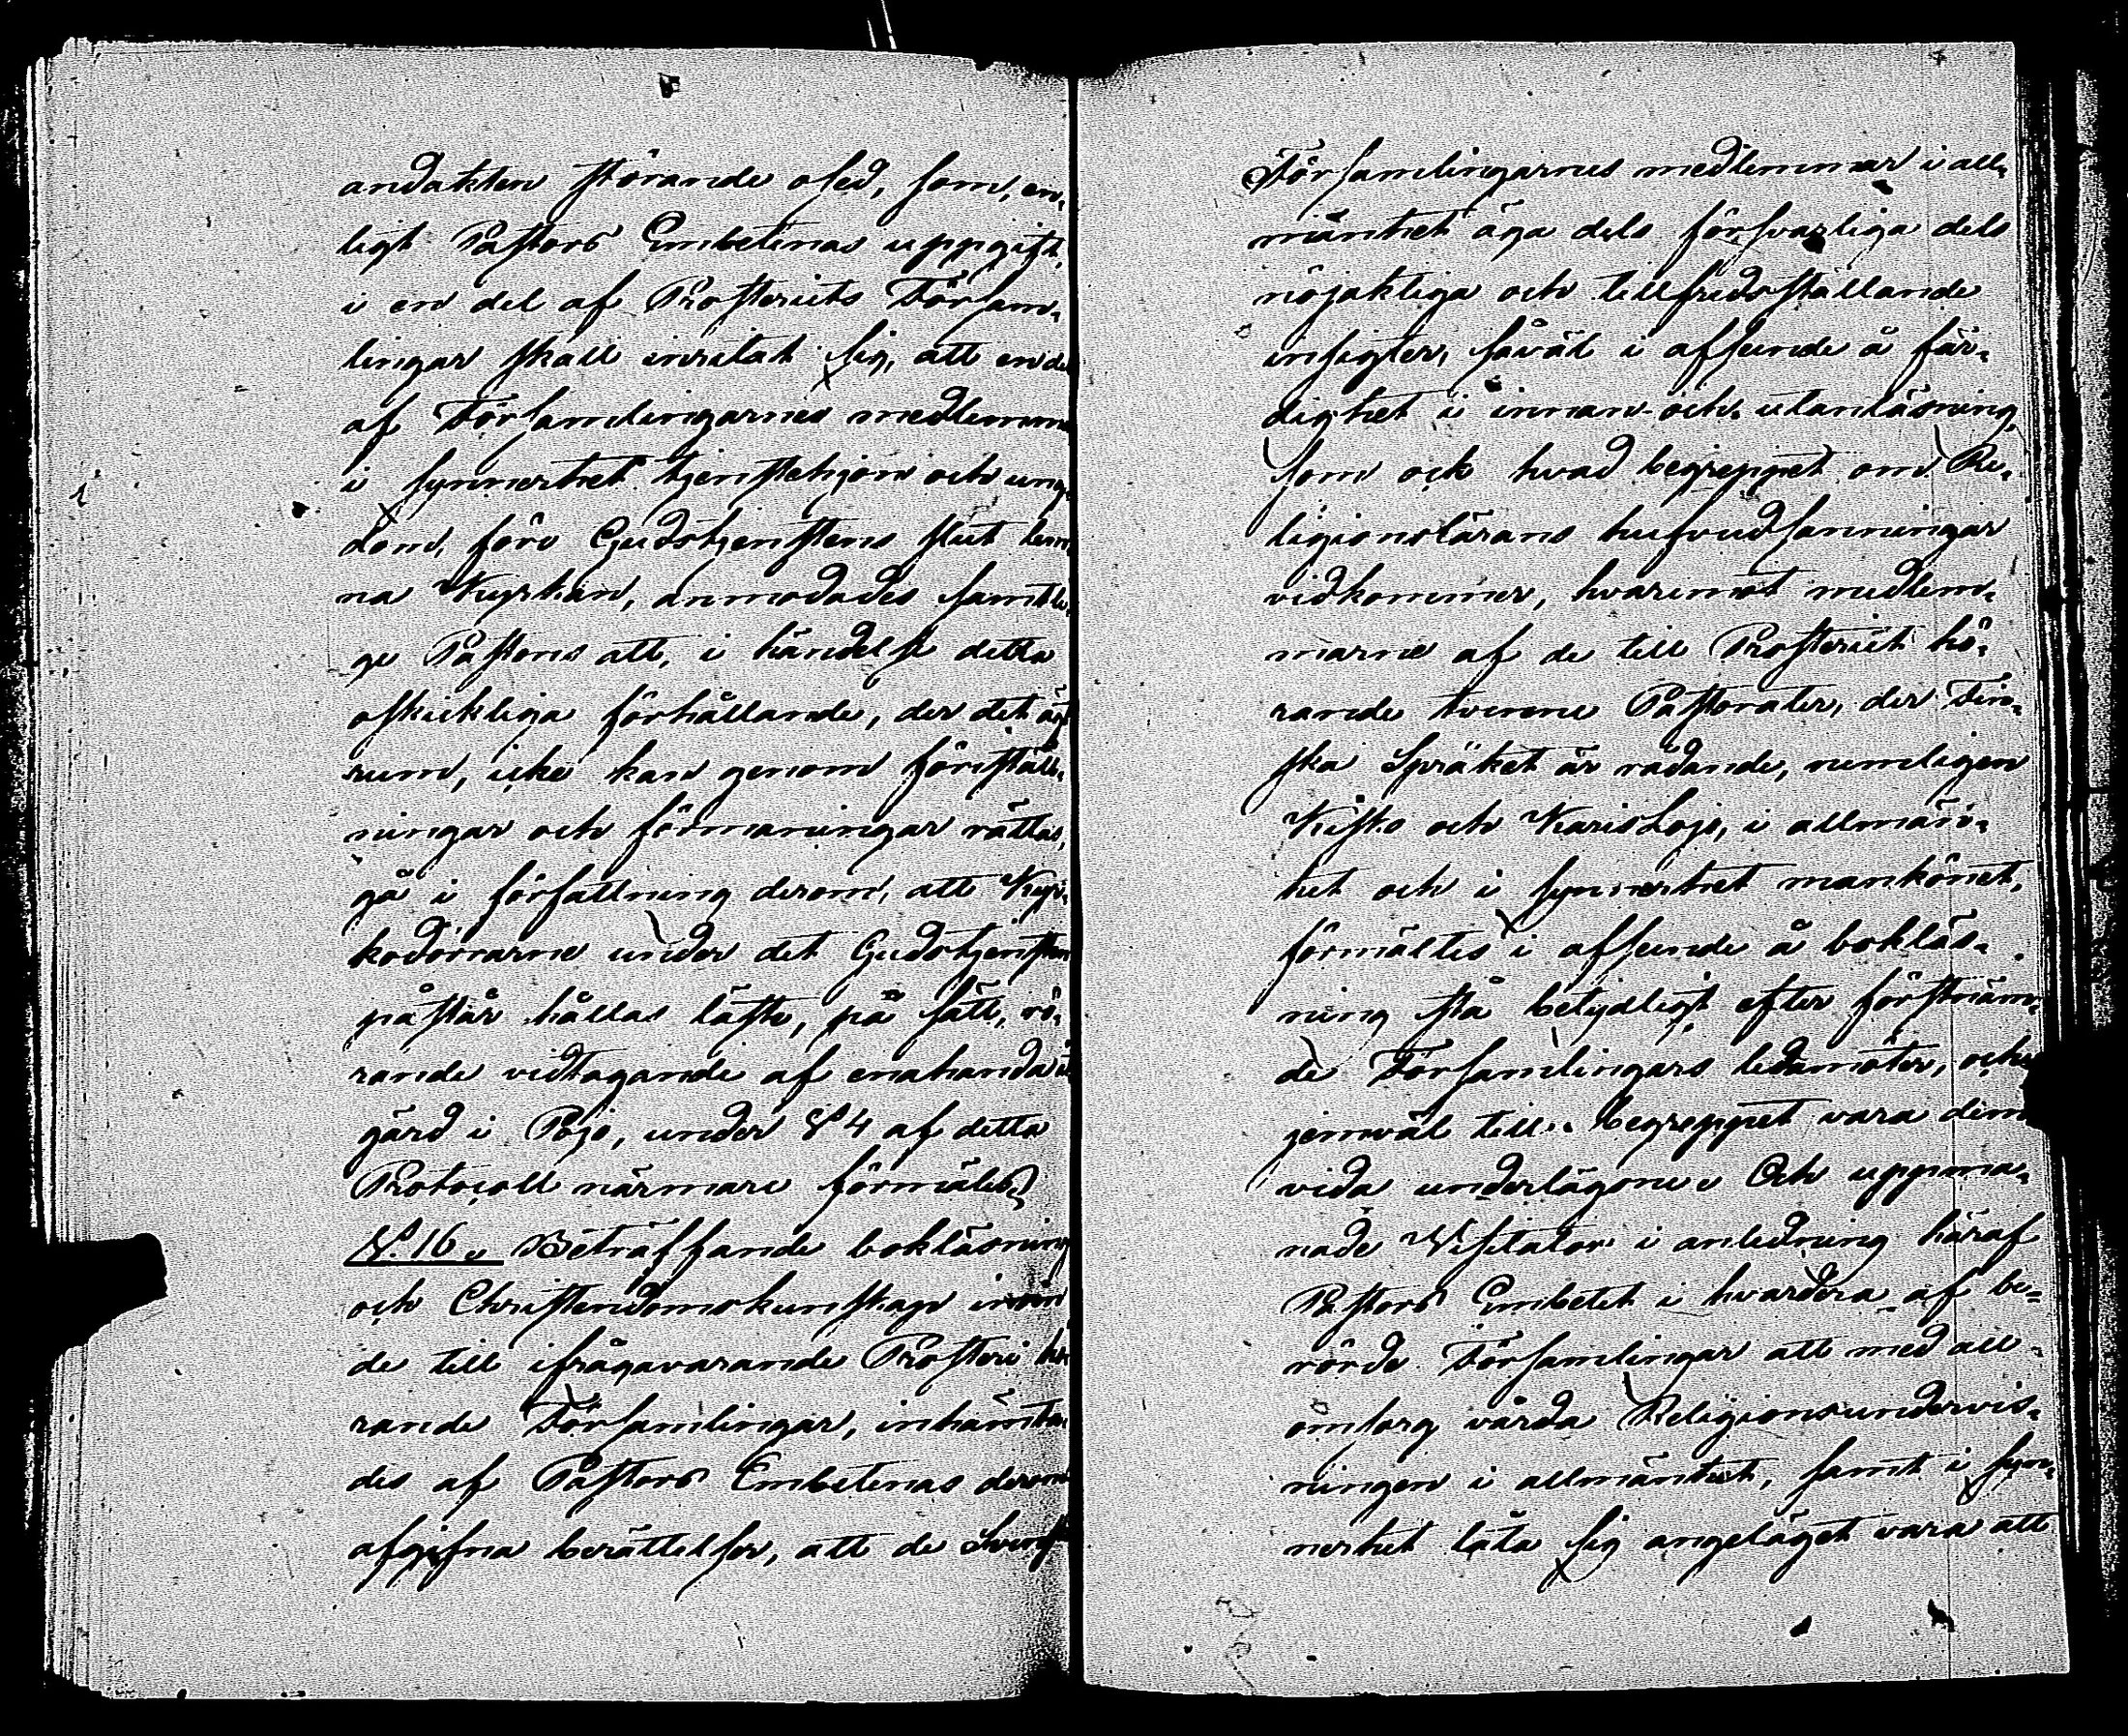 andakten störande osed, som, en-
ligt Pastors Embetenas uppgift,
i en del af Prosteriets Försam-
lingar skall inritat sig, att en del
af Församlingarnes medlemmar
i synnerhet tjenstehjon och ung-
dom, före Gudstjenstens slut lem-
na Kyrkan, anmodades samtli-
ge Pastorer att, i händelse detta
oskickliga förhållande, der det äger
rum, icke kan genom föreställ-
ningar och förmaningar rättas,
gå i författning derom, att Kyr-
kodörrarne under det Gudstjensten
påstår hållas läste, på sätt, rö-
rande vidtagande af enahanda åt-
gärd i Pojo, under § 4 af detta
Protocoll närmare förmäles.
§. 16. Beträffande bokläsning
och Christendomskunskap inom
de till ifrågavarande Prosteri hö-
rande Församlingar, inhämta-
des af Pastors Embetenas derom
afgifna berättelser, att de Svensk
Församlingarnes medlemmar i all-
mänhet äga dels försvarliga dels
nöjaktiga och tillfredsställande
insigter, såväl i afseende å fär-
dighet i innan- och utanläsning,
som ock hvad begreppet om Re-
ligionslärans hufvudsanningar
vidkommer, hvaremot medlem-
marne af de till Prosteriet hö-
rande tvenne Pastorater, der Fin-
ska Språket är rådande, nemligen
Kisko och KarisLojo, i allmän-
het och i synnerhet mankönet,
förmältes i afseende å bokläs-
ning stå betydligt efter förstnäm-
de Församlingars ledamöter, och
jemväl till begreppet vara dem
vida underlägsne. Och uppma-
nade Visitator i anledning häraf
Pastors Embetet i hvardera af be-
rörde Församlingar att med all
omsorg vårda Religionsundervis-
ningen i allmänhet, samt i syn-
nerhet låta sig angeläget vara att